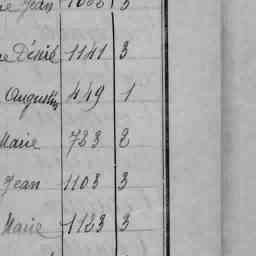 Jean 1088 3
Désiré 1141 3
Augustin 449 1
Marie 723 2
Jean 1103 3
Marie 1123 3